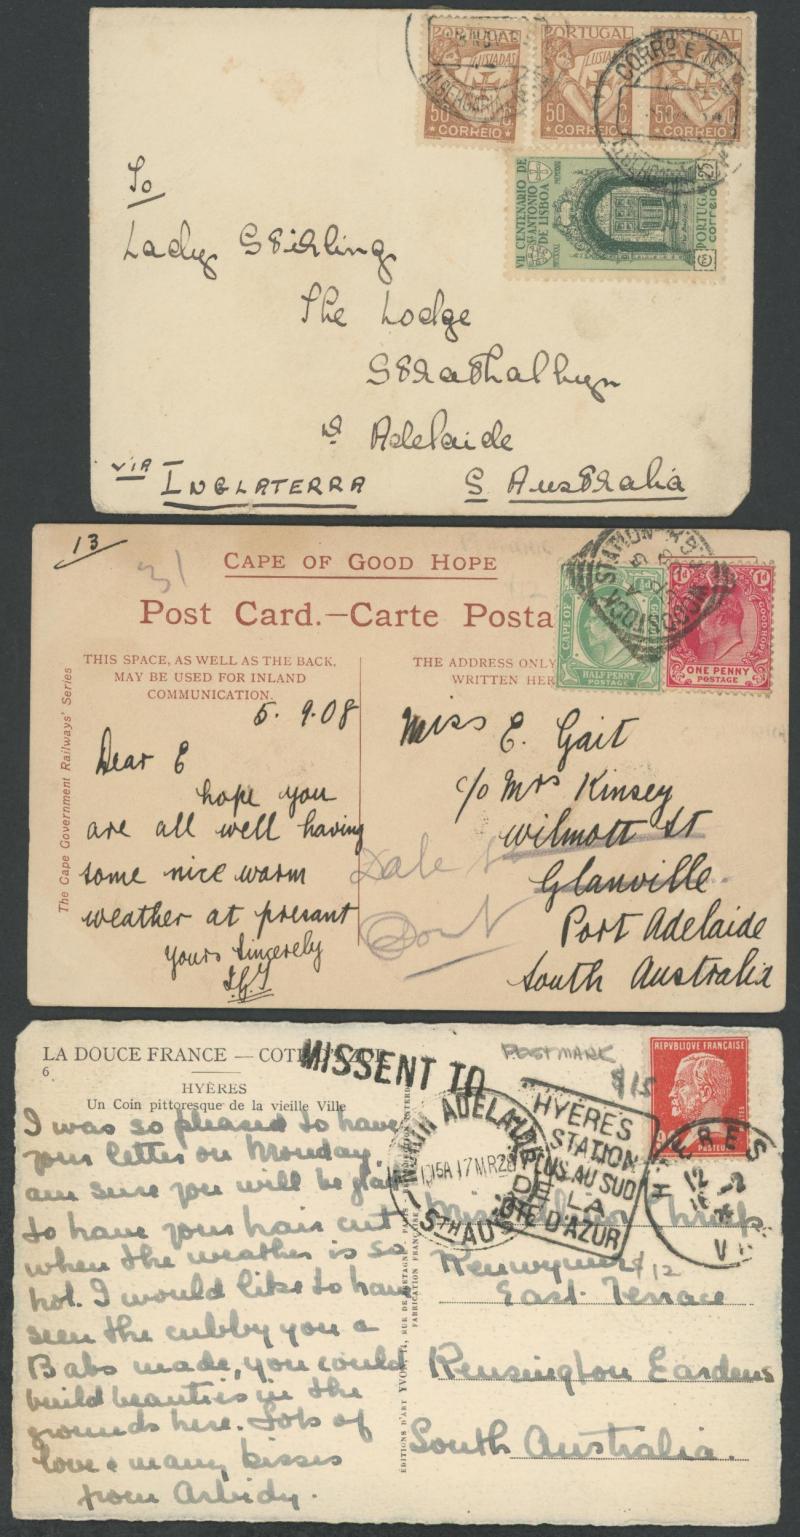 PORTUGAL
LUSIADAS
50 C.
CORREIO
PORTUGAL
LUSIADAS
50 C.
CORREIO
50 C.
CORREIO
CORRO E TEL
ALBERGARIA
VII CENTENARIO DE
STO ANTONIO
DE LISBOA
PORTUGAL
CORREIO
To
Lady Stirling
The Lodge
Strathalbyn
Adelaide
via INGLATERRA
S Australia
13
31
CAPE OF GOOD HOPE
Post Card.—Carte Posta
THIS SPACE, AS WELL AS THE BACK,
MAY BE USED FOR INLAND
COMMUNICATION.
THE ADDRESS ONLY
WRITTEN HER
CAPE OF
HALF PENNY
POSTAGE
1d 1d
GOOD HOPE
ONE PENNY
POSTAGE
WOODSTOCK STATION
The Cape Government Railways' Series
5. 9.08
Dear E
hope you
are all well having
some nice warm
weather at presant
yours sincerely
Miss E. Gait
c/o Mrs Kinsey
Wilmott St
Glanville
Port Adelaide
South Australia
LA DOUCE FRANCE — COTE D'AZUR
6
HYÈRES
Un Coin pittoresque de la vieille Ville
MISSENT TO
POSTMARK
$15
REPVBLIQVE FRANÇAISE
PASTEUR
NORTH ADELAIDE
1015A 17MR28
STH AUST
HYÈRES
STATION
LA PLUS AU SUD
DE LA
CÔTE D'AZUR
HYERES
12
VAR
I was so pleased to have
your letter on Monday.
am sure you will be glad
to have your hair cut
when the weather is so
hot. I would like to have
seen the cubby you &
Babs made, you could
build beauties in the
grounds here. Lots of
love & many kisses
from
Miss
$12
East Terrace
Kensington Gardens
South Australia.
EDITIONS D'ART YVON, RUE DE BRETAGNE
FABRICATION FRANÇAISE